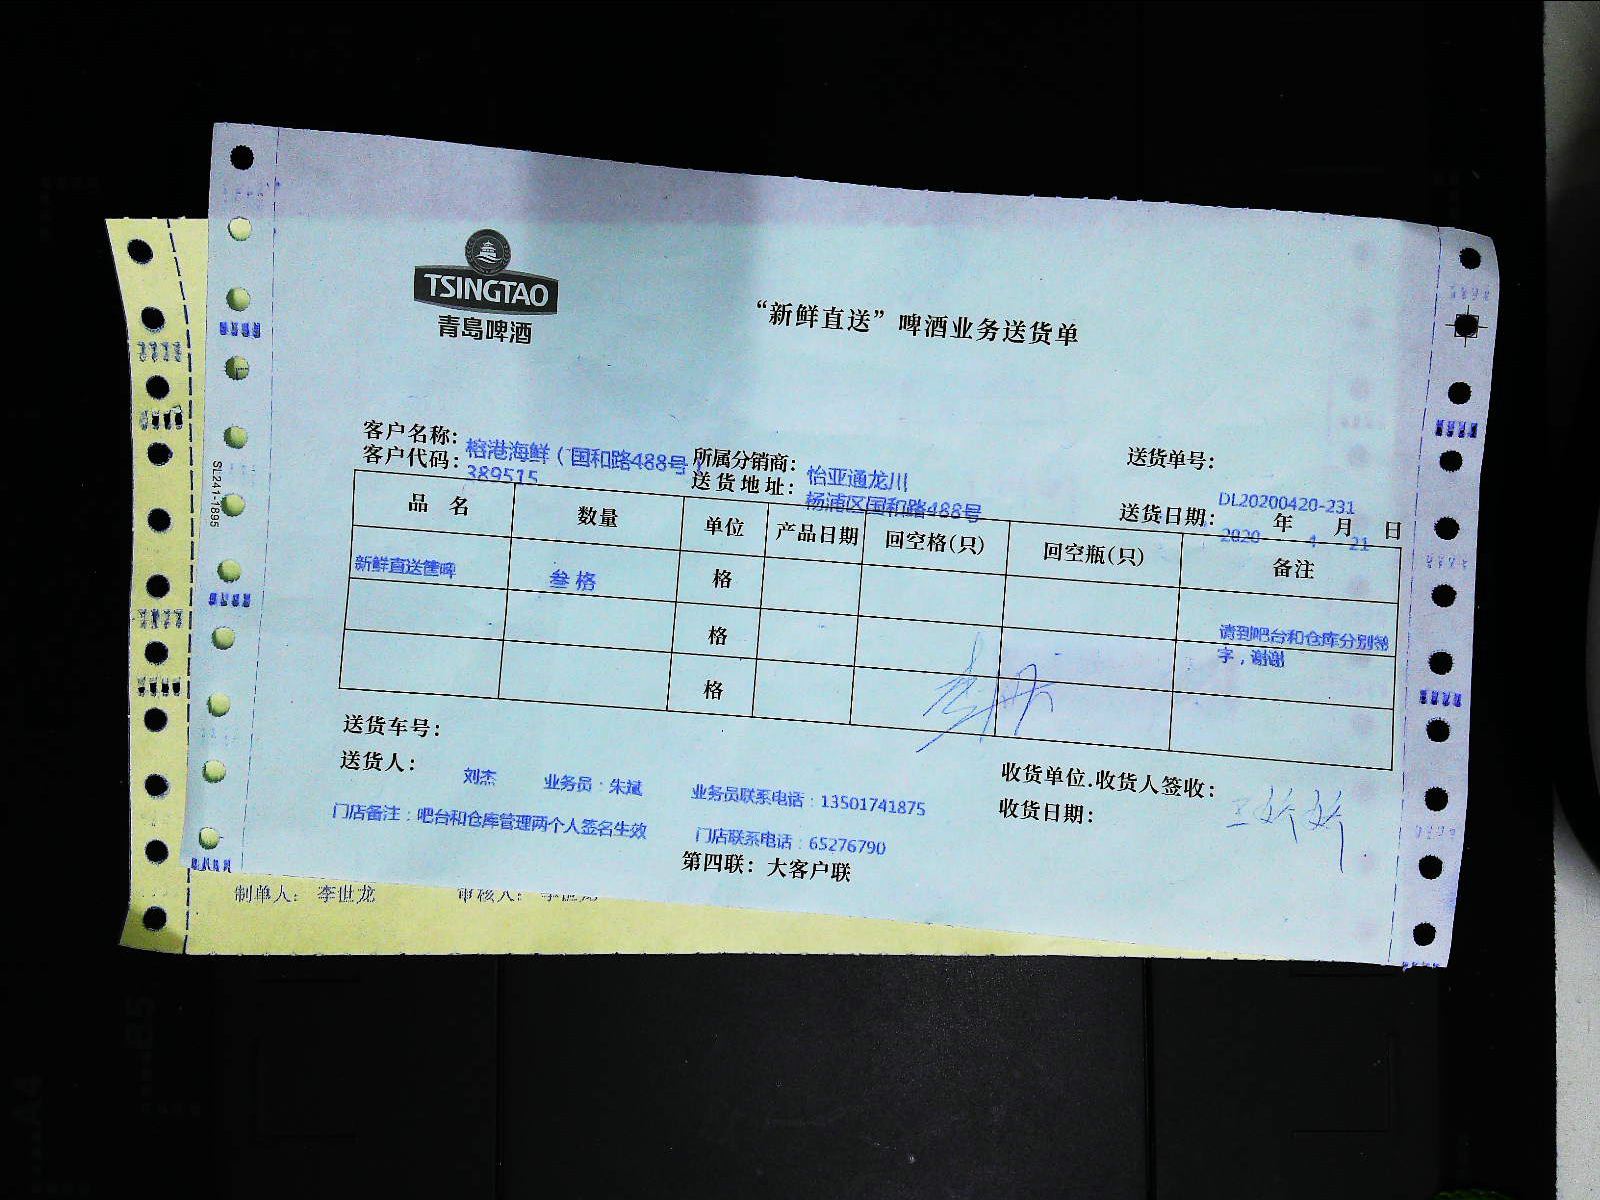 TSINGTAO
青岛啤酒
“新鲜直送”啤酒业务送货单
客户名称：榕港海鲜（国和路488号） 所属分销商：怡亚通龙川 送货单号：DL20200420-231
客户代码：389515 送货地址：杨浦区国和路488号 送货日期：2020年4月21日
品名 数量 单位 产品日期 回空格(只) 回空瓶(只) 备注
新鲜直送 叁格 格
格 请到吧台和仓库分别签字，谢谢
格
送货车号：
送货人：刘杰 业务员：朱斌 业务员联系电话：13501741875 收货单位.收货人签收：
门店备注：吧台和仓库管理两个人签名生效 门店联系电话：65276790 收货日期：
第四联：大客户联
制单人：李世龙 审核人：李世龙
SL241-1895